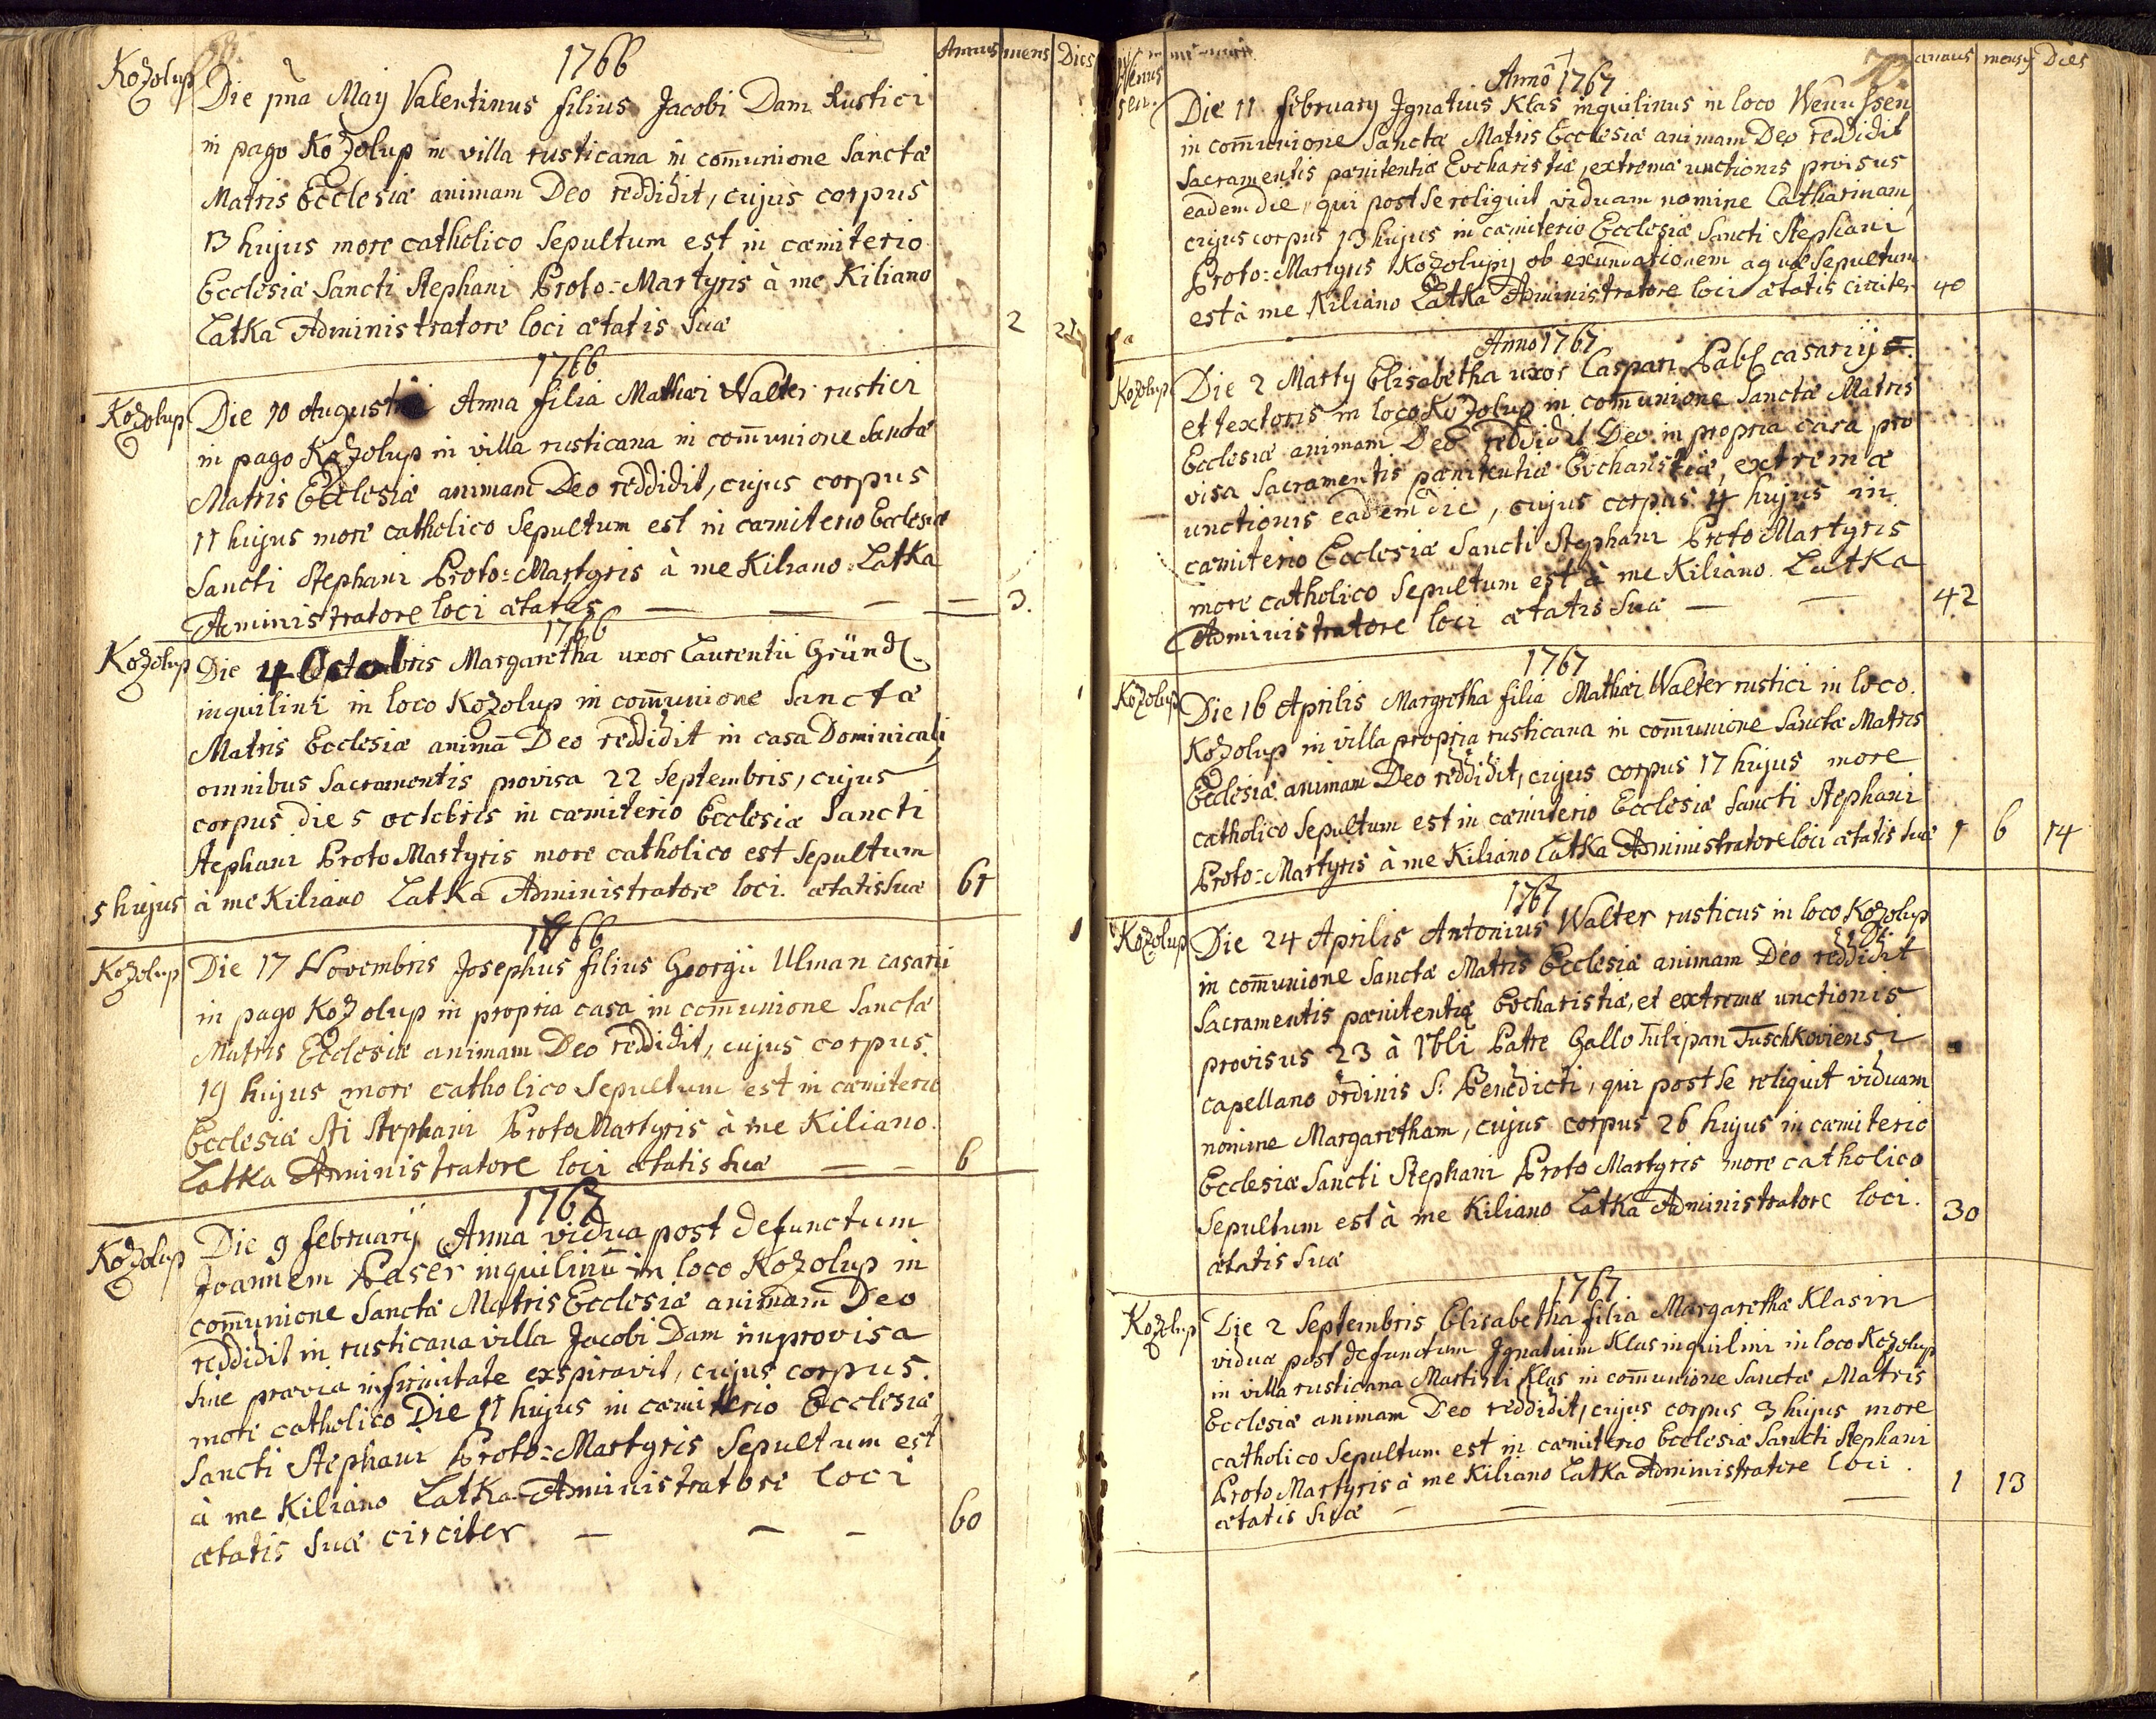 Annus mens Dies
1766
Kozolup
Die pñа May Valentinus filius Jacobi Dam Rustici
in pago Kozolup in villa rusticana in com̄unione Sanctæ
Matris Ecclesiæ animam Deo reddidit, cujus corpus
13 hujus more catholico Sepultum est in cæmiterio
Ecclesiæ Sancti Stephani Proto=Martyris à me Kiliano
Latka Administratore loci ætatis Suæ 2
1766
Kozolup
Die 10 Augusti Anna filia Mathæi Walter rustici
in pago Kozolup in villa rusticana in com̄unione Sanctæ
Matris Ecclesiæ animam Deo reddidit, cujus corpus
11 hujus more catholico Sepultum est in cæmiterio Ecclesiæ
Sancti Stephani Proto=Martyris à me Kiliano Latka
Administratore loci ætatis — — — — 3.
1766
Kozolup
Die 4 Octobris Margaretha uxor Laurentii Gründl
inquilini in loco Kozolup in com̄unione Sanctæ
Matris Ecclesiæ animā Deo reddidit in casa Dominicali
omnibus Sacramentis provisa 22 Septembris, cujus
corpus die 5 octobris in cæmiterio Ecclesiæ Sancti
Stephani Proto Martyris more catholico est Sepultum
5 hujus à me Kiliano Latka Administratore loci. ætatis Suæ 61
1766
Kozolup
Die 17 Novembris Josephus filius Georgii Ulman casarii
in pago Kozolup in propria casa in com̄unione Sanctæ
Matris Ecclesiæ animam Deo reddidit, cujus corpus.
19 hujus more catholico Sepultum est in cæmiterio
Ecclesiæ Sti Stephani Proto Martyris à me Kiliano.
Latka Administratore loci ætatis Suæ — — 6
1767
Kozolup
Die 9 februarij Anna vidua post defunctum
Joannem Paser inquilinū in loco Kozolup in
com̄unione Sanctæ Matris Ecclesiæ animam Deo
reddidit in rusticana villa Jacobi Dam improvisa
Sine prævia infirmitate exspiravit, cujus corpus.
more catholico Die 11 hujus in cæmiterio Ecclesiæ
Sancti Stephani Proto=Martyris Sepultum est
à me Kiliano Latka Administratore loci
ætatis Suæ circiter — — — 60
annus mensis Dies
Anno 1767
Die 11 february Ignatius Klas inquilinus in loco Wenussen
in com̄unione Sanctæ Matris Ecclesiæ animam Deo reddidit
Sacramentis pænitentiæ Eucharistiæ, extremæ unctionis provisus
eadem die, qui post Se reliquit viduam nomine Catharinam,
cujus corpus 13 hujus in cæmiterio Ecclesiæ Sancti Stephani
Proto=Martyris Kozolupij ob exundationem aquæ Sepultum
est à me Kiliano Latka Administratore loci ætatis circiter 40
Anno 1767
Kozolup
Die 2 Marty Elisabetha uxor Caspari Pabl casarij
et textoris in loco Kozolup in com̄unione Sanctæ Matris
Ecclesiæ animam Deo reddidit Deo in propria casa pro
visa Sacramentis pænitentiæ Eucharistiæ, extremæ
unctionis eadem die, cujus corpus 4 hujus in
cæmiterio Ecclesiæ Sancti Stephani Proto Martyris
more catholico Sepultum est à me Kiliano Latka
Administratore loci ætatis Suæ — — 42
1767
Kozolup
Die 16 Aprilis Margretha filia Mathæi Walter rustici in loco.
Kozolup in villa propria rusticana in com̄unione Sanctæ Matris
Ecclesiæ animam Deo reddidit, cujus corpus 17 hujus more
catholico Sepultum est in cæmiterio Ecclesiæ Sancti Stephani
Proto=Martyris à me Kiliano Latka Administratore loci ætatis Suæ 1 6 14
1767
Kozolup
Die 24 Aprilis Antonius Walter rusticus in loco Kozolup
in com̄unione Sanctæ Matris Ecclesiæ animam Deo reddidit
Sacramentis pænitentiæ Eucharistiæ, et extremæ unctionis
provisus 23 à Patre Gallo Tulipan Tuschkoviensi
capellano ordinis S. Benedicti, qui post Se reliquit viduam
nomine Margaretham, cujus corpus 26 hujus in cæmiterio
Ecclesiæ Sancti Stephani Proto Martyris more catholico
Sepultum est à me Kiliano Latka Administratore loci. 30
ætatis Suæ
1767
Kozolup
Die 2 Septembris Elisabetha filia Margarethæ Klasin
viduæ post defunctum Ignatium Klas inquilini in loco Kozolup
in villa rusticana Martini Klas in com̄unione Sanctæ Matris
Ecclesiæ animam Deo reddidit, cujus corpus 3 hujus more
catholico Sepultum est in cæmiterio Ecclesiæ Sancti Stephani
Proto Martyris à me Kiliano Latka Administratore loci. 1 13
ætatis Suæ — — — —